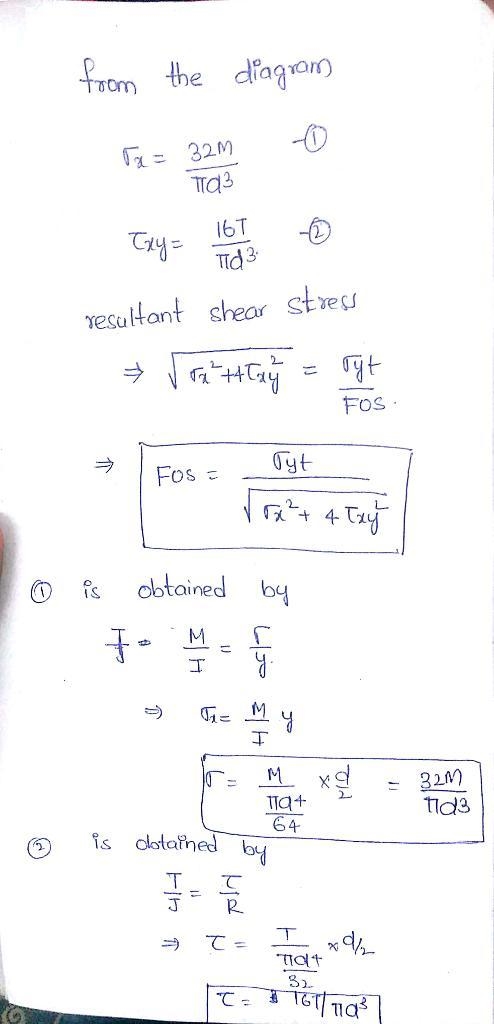 from the diagram
σx = 32M / πd3 -①
τxy = 16T / πd3. -②
resultant shear stress
⇒ √(σx² + 4τxy²) = σyt / FOS.
⇒ FOS = σyt / √(σx² + 4τxy²)
① is obtained by
M / I = σ / y.
⇒ σx = M / I y
σ = M / (πd4 / 64) × d / 2 = 32M / πd3
② is obtained by
T / J = τ / R
⇒ τ = T / (πd4 / 32) × d/2
τ = 16T / πd3